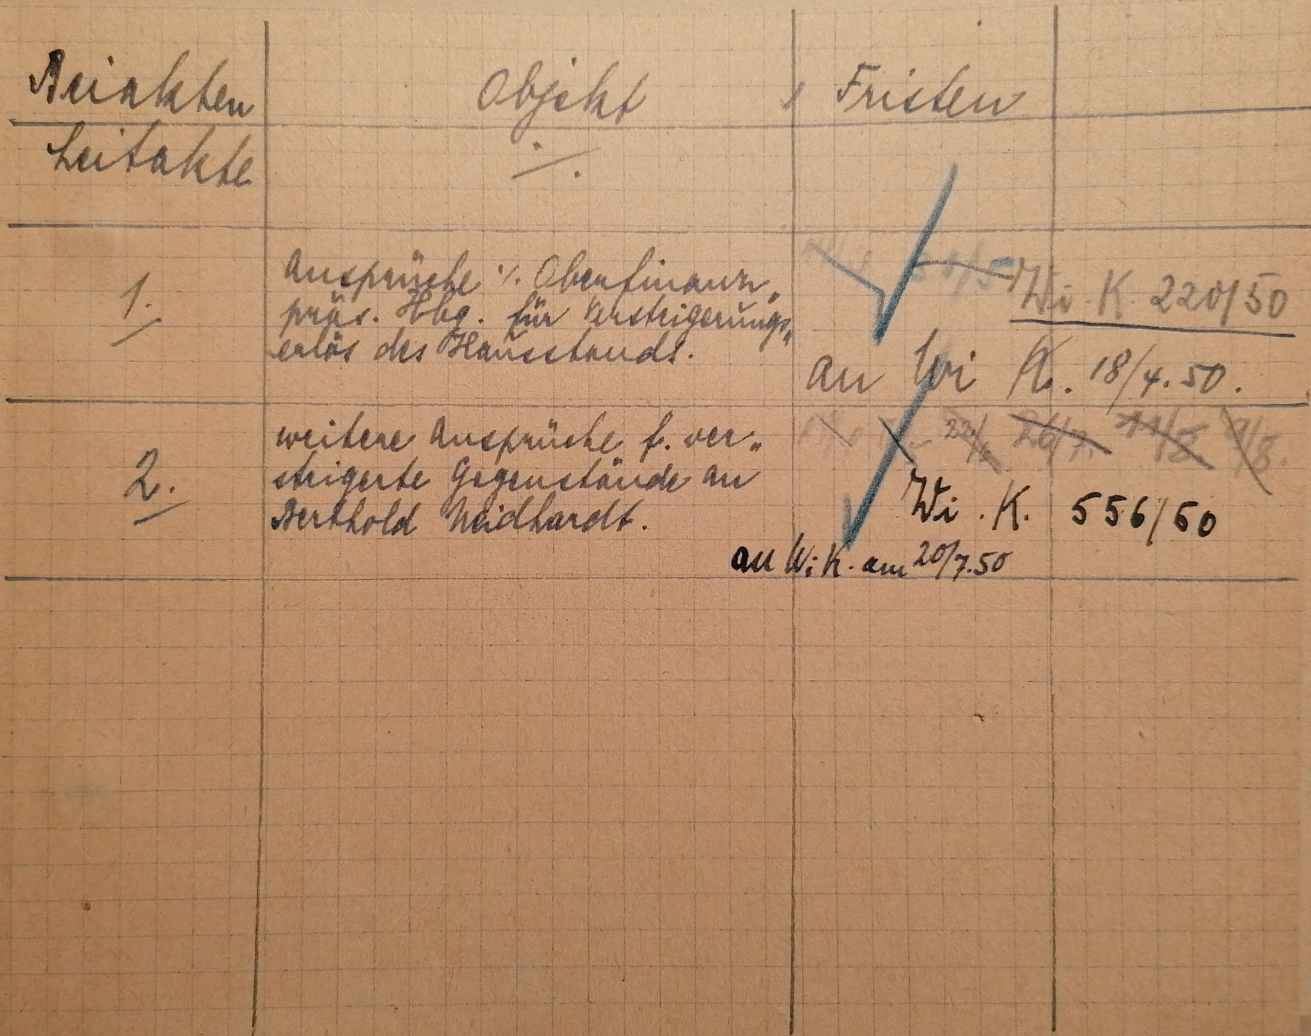 Beiakten Objekt Fristen
Leitakte
1.
Ansprüche ./. Oberfinanz-
präs. Hbg. für Versteigerungs-
erlös des Hausstands.
Wi. K 220/50
an Wi K. 18/4.50.
2.
weitere Ansprüche f. ver-
steigerte Gegenstände an
Berthold Neidhardt.
22/6 26/7. 11/8 9/8.
Wi. K. 556/50
an Wi K. am 20/7.50